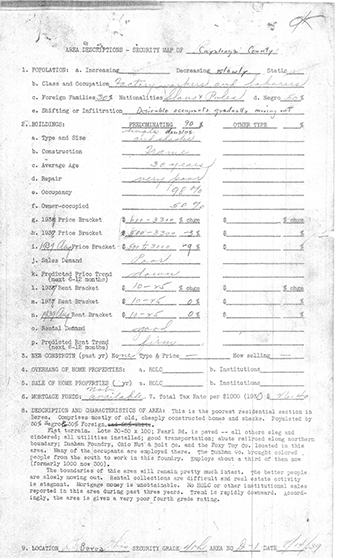 AREA DESCRIPTIONS - SECURITY MAP OF Cuyahoga County
1. POPULATION: a. Increasing Decreasing slowly Static
b. Class and Occupation Factory workers and laborers
c. Foreign Families 30% Nationalities Slavs & Poles d. Negro 50 %
e. Shifting or Infiltration Desirable occupants gradually moving out
2. BUILDINGS: PREDOMINATING 90 % OTHER TYPE %
a. Type and Size singles doubles and shacks
b. Construction Frame
c. Average Age 30 years
d. Repair very poor
e. Occupancy 98%
f. Owner-occupied 50%
g. Price Bracket $ % chge $ % chge
h. 1937 Price Bracket $ -3300 % $ %
i. 1939 Aug Price Bracket $ 3000 -9 % $ %
j. Sales Demand Poor
k. Predicted Price Trend (next 6-12 months) down
l. Rent Bracket $ 10-25 % chge $ % chge
m. 1937 Rent Bracket $ 10-25 0 % $ %
n. 1939 Aug Rent Bracket $ 10-25 0 % $ %
o. Rental Demand good
p. Predicted Rent Trend (next 6-12 months) firm
3. NEW CONSTR'N (past yr) None Type & Price How selling
4. OVERHANG OF HOME PROPERTIES: a. HOLC b. Institutions
5. SALE OF HOME PROPERTIES ( yr) a. HOLC b. Institutions
6. MORTGAGE FUNDS: not available 7. Total Tax Rate per $1000 (193 ) $
8. DESCRIPTION AND CHARACTERISTICS OF AREA: This is the poorest residential section in
Berea. Comprises mostly of old, cheaply constructed homes and shacks. Populated by
50% Negro & 30% Foreign.
Flat terrain. Lots 30-50 x 100; Pearl Rd. is paved -- all others slag and
cindered; all utilities installed; good transportation; abuts railroad along northern
boundary; Dunham Foundry, Ohio Nut & Bolt Co. and the Foxy Toy Co. located in this
area. Many of the occupants are employed there. The Dunham Co. brought colored
people from the south to work in this foundry. Employs about a third of them now
(formerly 1000 now 300).
The boundaries of this area will remain pretty much intact. The better people
are slowly moving out. Rental collections are difficult and real estate activity
is stagnant. Mortgage money is unobtainable. No HOLC or other institutional sales
reported in this area during past three years. Trend is rapidly downward. Accord-
ingly, the area is given a very poor fourth grade rating.
9. LOCATION Berea SECURITY GRADE 4th AREA NO. D-1 DATE